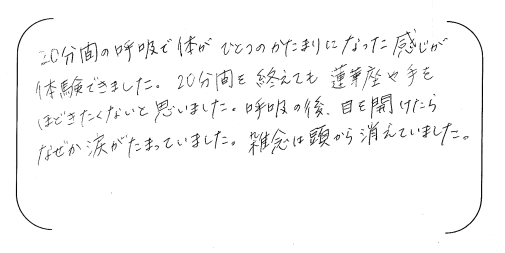 20分間の呼吸で体がひとつのかたまりになった感じが
体験できました。20分間を終えても蓮華座や手を
ほどきたくないと思いました。呼吸の後、目を開けたら
なぜか涙がたまっていました。雑念は頭から消えていました。